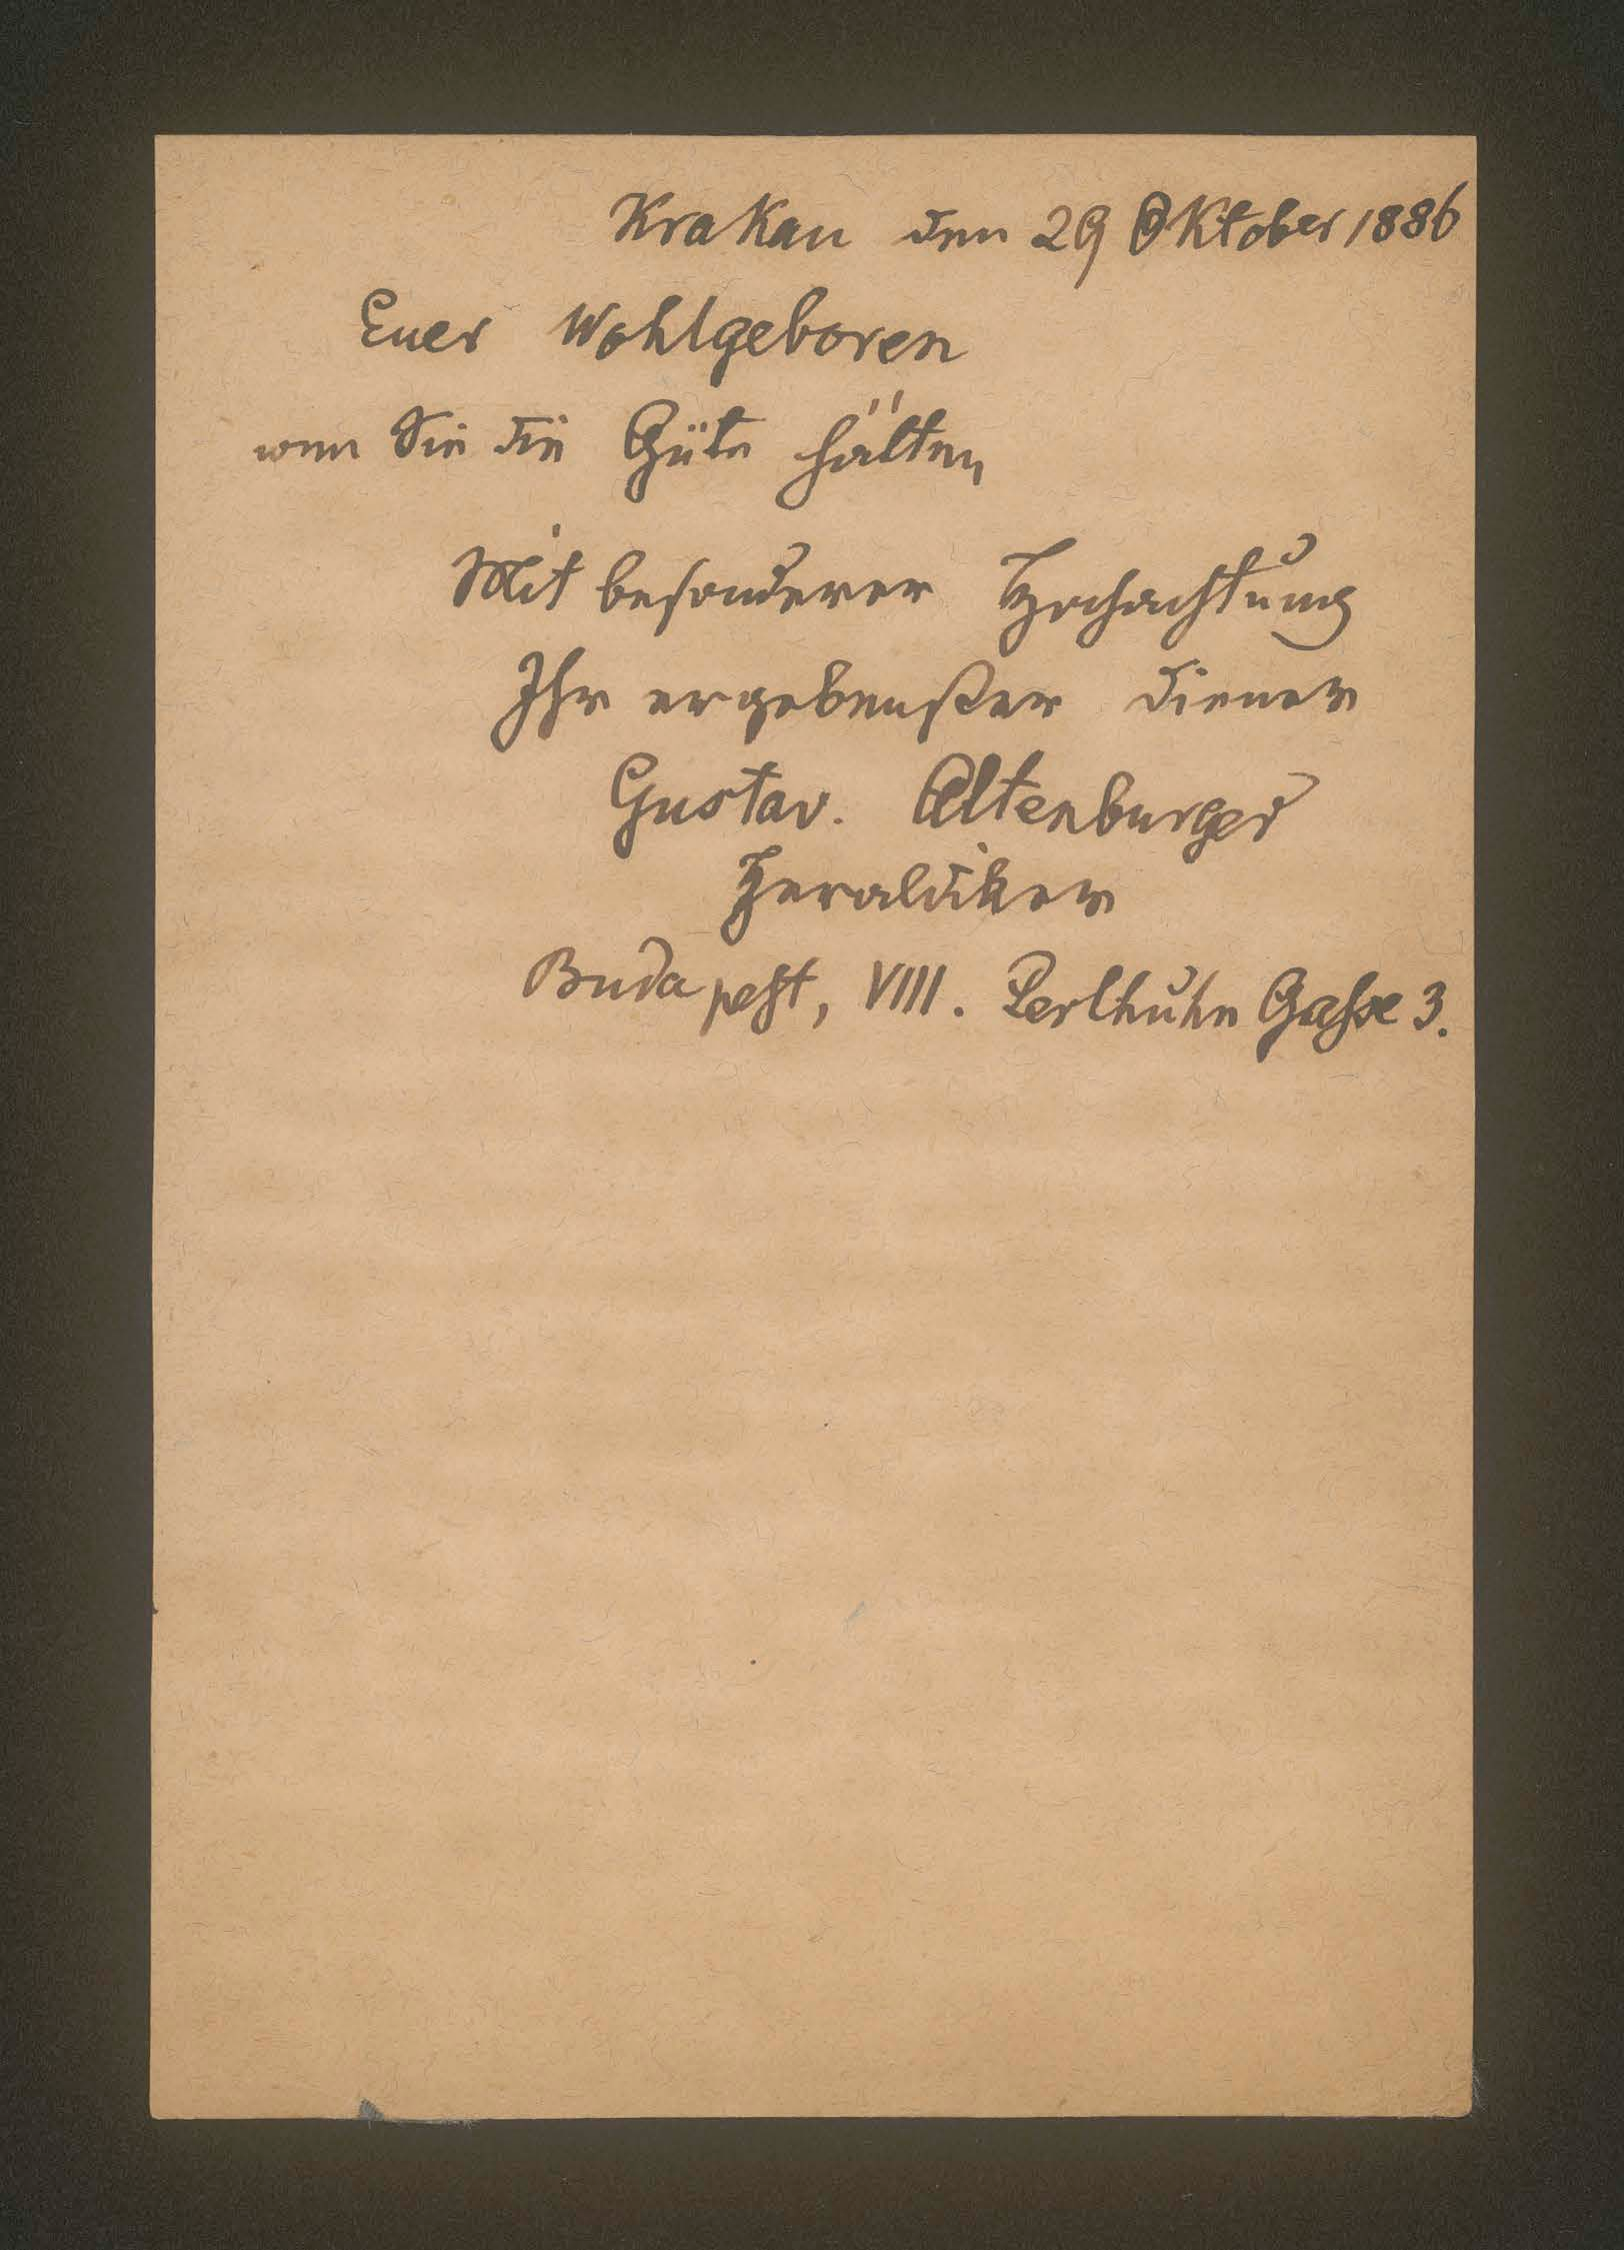 Krakau den 29 Oktober 1886
Euer Wohlgeboren
wen Sie die Güte hätten
Mit besonderer Hochachtung
Ihr ergebenster diener
Gustav. Altenburger
Heraldiker
Budapest, VIII. Perlhuhn Gasse 3.